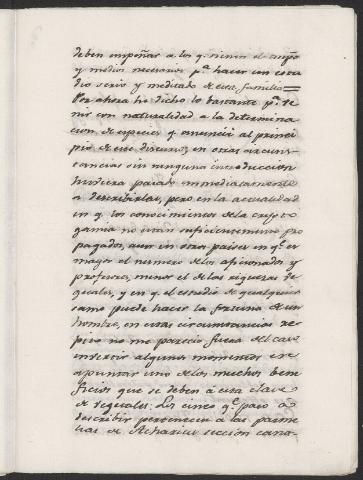 deben empeñar a los q.e tienen el tiempo
y medios necesarios p.a hacer un estu
dio serio y meditado de esta familia =
Por ahora he dicho lo bastante p.a ve
nir con naturalidad a la determina
cion de especies q. anuncié al princi
pio de este discurso; en otras circuns-
tancias sin ninguna introduccion
hubiera pasado immediatamente
a describirlas, pero en la actualidad
en q. los conocimientos de la cripto
gamia no estan suficientemente pro
pagados, aun en otros paises en q.e es
mayor el numero de los aficionados y
profesores, menor el de las riquezas ve
getales, y en q. el estudio de qualquier
ramo puede hacer la fortuna de un
hombre, en estas circunstancias re-
pito no me parecio fuera del caso
invertir algunos momentos en
apuntar uno de los muchos bene
ficios que se deben a esta clave
de vegetales. Los cinco q.e paso a
describir pertenecen a las parme
lias de Acharius seccion